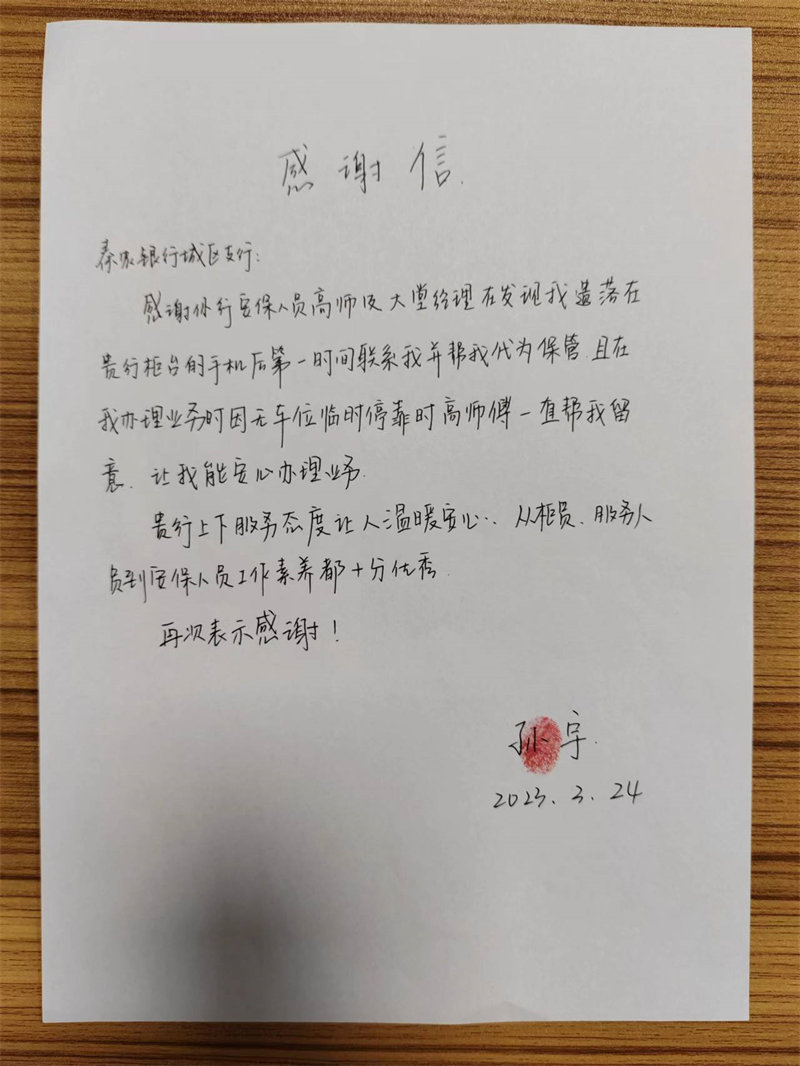 感谢信.
秦农银行城区支行:
感谢你行安保人员高师及大堂经理在发现我遗落在
贵行柜台的手机后第一时间联系我并帮我代为保管.且在
我办理业务时因无车位临时停靠时高师傅一直帮我留
意.让我能安心办理业务.
贵行上下服务态度让人温暖安心.从柜员、服务人
员到安保人员工作素养都十分优秀.
再次表示感谢!
孙宇.
2023.3.24